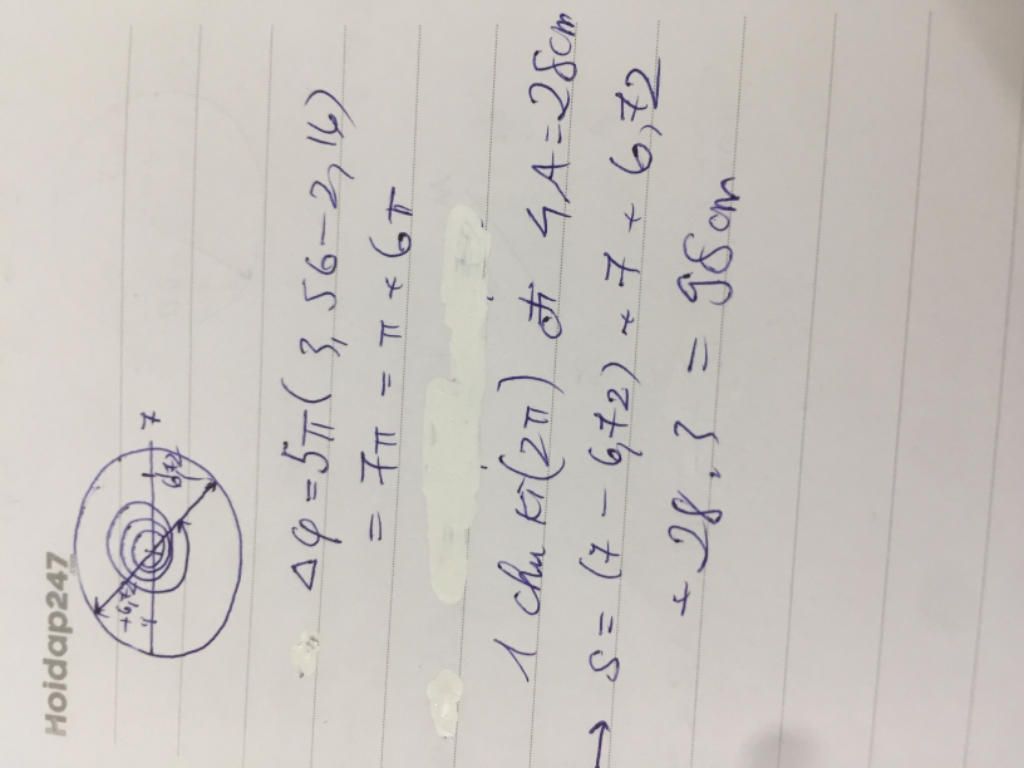 Hoidap247
.com
7
6,72
-6,72
Δφ = 5π(3,56 - 2,16)
= 7π = π + 6π
1 chu kì (2π) đi 4A = 28cm
→ S = (7 - 6,72) + 7 + 6,72
+ 28.3 = 98cm